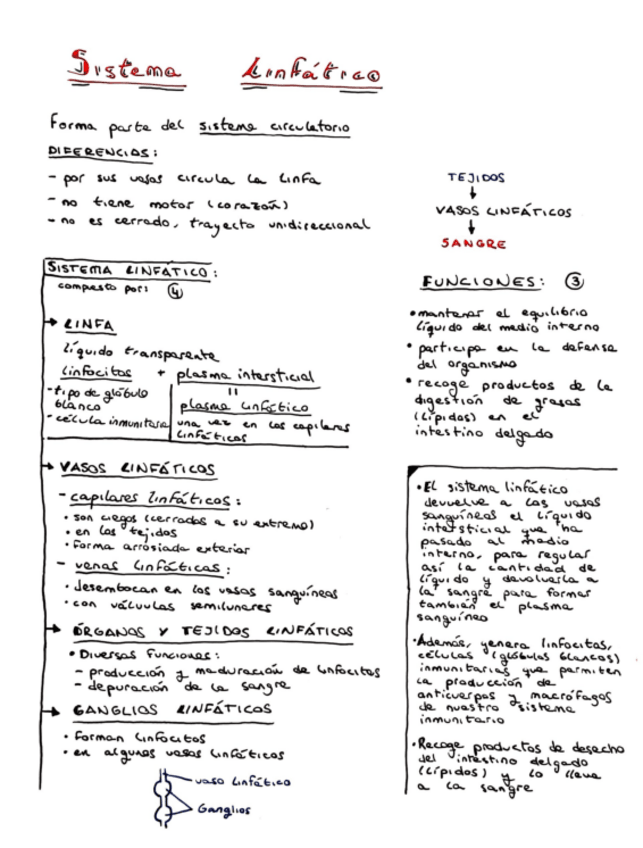 Sistema Linfático
Forma parte del sistema circulatorio
DIFERENCIAS:
- por sus vasos circula la linfa
- no tiene motor (corazón)
- no es cerrado, trayecto unidireccional
TEJIDOS
↓
VASOS LINFÁTICOS
↓
SANGRE
SISTEMA LINFÁTICO:
compuesto por: 4
→ LINFA
líquido transparente
linfocitos + plasma intersticial
- tipo de glóbulo
blanco
- célula inmunitara
=
plasma linfático
una vez en los capilares
linfáticos
→ VASOS LINFÁTICOS
- capilares linfáticos:
• son ciegos (cerrados a su extremo)
• en los tejidos
• forma arrosiada exterior
- venas linfáticas:
• desembocan en los vasos sanguíneos
• con válvulas semilunares
→ ÓRGANOS Y TEJIDOS LINFÁTICOS
• Diversas funciones:
- producción y maduración de linfocitos
- depuración de la sangre
→ GANGLIOS LINFÁTICOS
• forman linfocitos
• en algunos vasos linfáticos
vaso linfático
Ganglios
FUNCIONES: 3
• mantener el equilibrio
líquido del medio interno
• participa en la defensa
del organismo
• recoge productos de la
digestión de grasas
(lípidos) en el
intestino delgado
• El sistema linfático
devuelve a los vasos
sanguíneos el líquido
intersticial que ha
pasado al medio
interno, para regular
así la cantidad de
líquido y devolverla a
la sangre para formar
también el plasma
sanguíneo
• Además, genera linfocitos,
células (glóbulos blancos)
inmunitarias que permiten
la producción de
anticuerpos y macrófagos
de nuestro sistema
inmunitario
• Recoge productos de desecho
del intestino delgado
(lípidos) y lo lleva
a la sangre